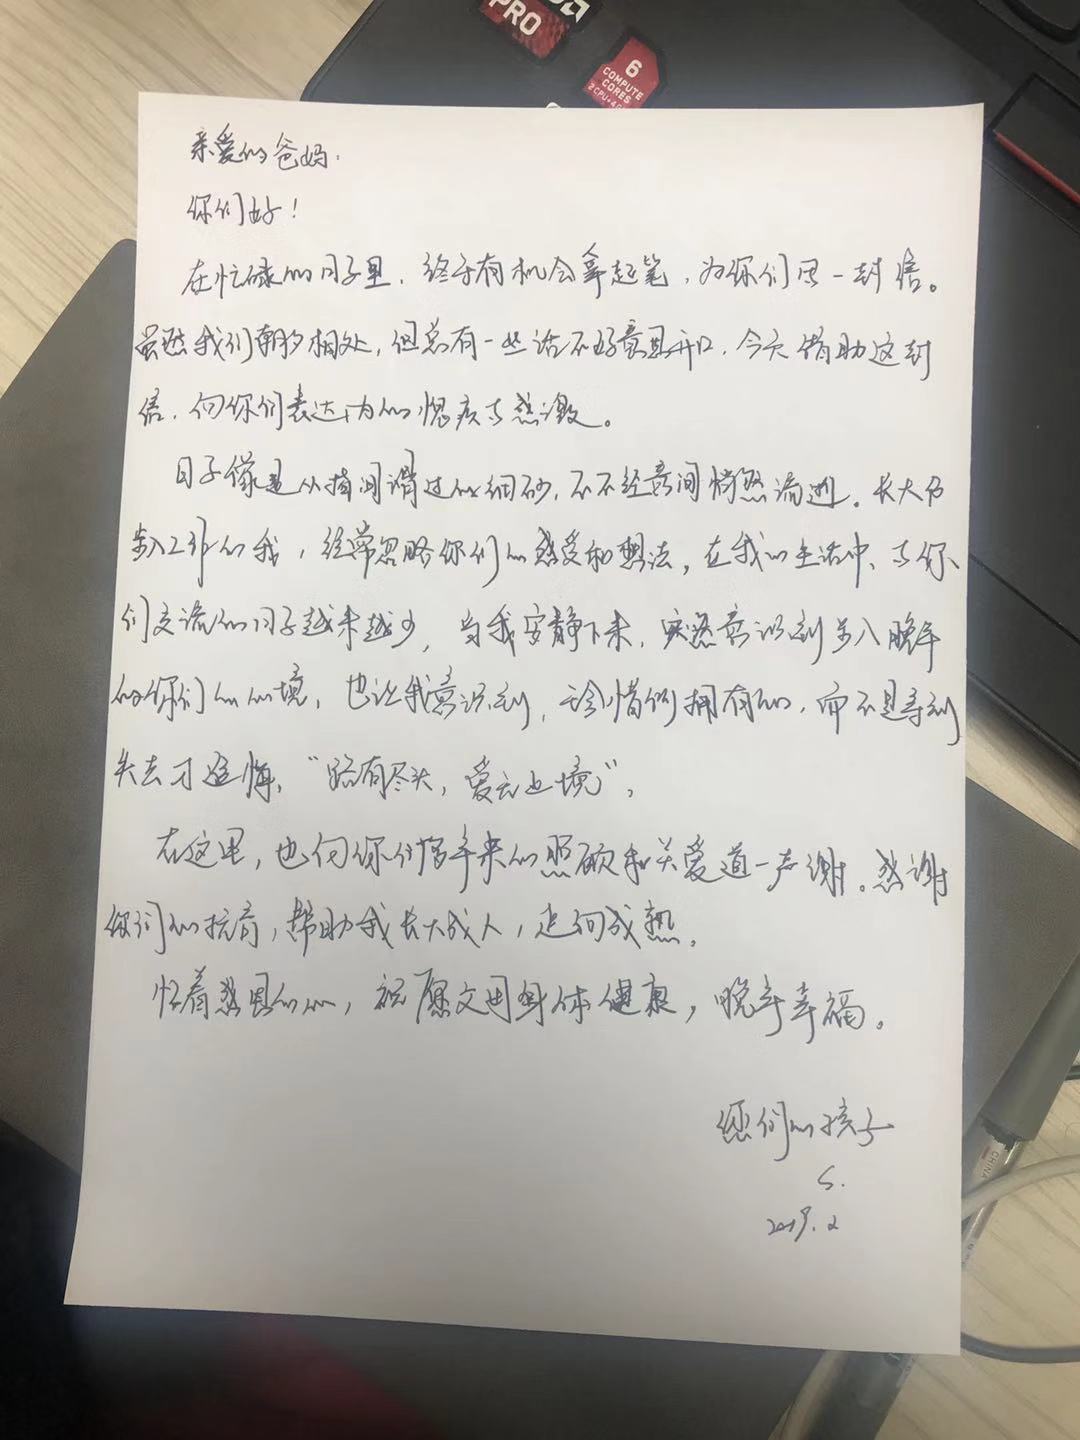 PRO
6
COMPUTE
CORES
2 CPU+4 G
亲爱的爸妈：
你们好！
在忙碌的日子里，终于有机会拿起笔，为你们写一封信。
虽然我们朝夕相处，但总有一些话不好意思开口，今天借助这封
信，向你们表达内心的愧疚与感激。
日子像是从指间滑过的细砂，在不经意间悄然流逝。长大后
步入工作的我，经常忽略你们的感受和想法，在我的生活中，与你
们交流的日子越来越少，当我安静下来，突然意识到步入晚年
的你们的心境，也让我意识到，珍惜所拥有的，而不是等到
失去才追悔，“路有尽头，爱无止境”，
在这里，也向你们多年来的照顾和关爱道一声谢。感谢
你们的抚育，帮助我长大成人，走向成熟。
怀着感恩的心，祝愿父母身体健康，晚年幸福。
您们的孩子
S.
2019.2
CHINA